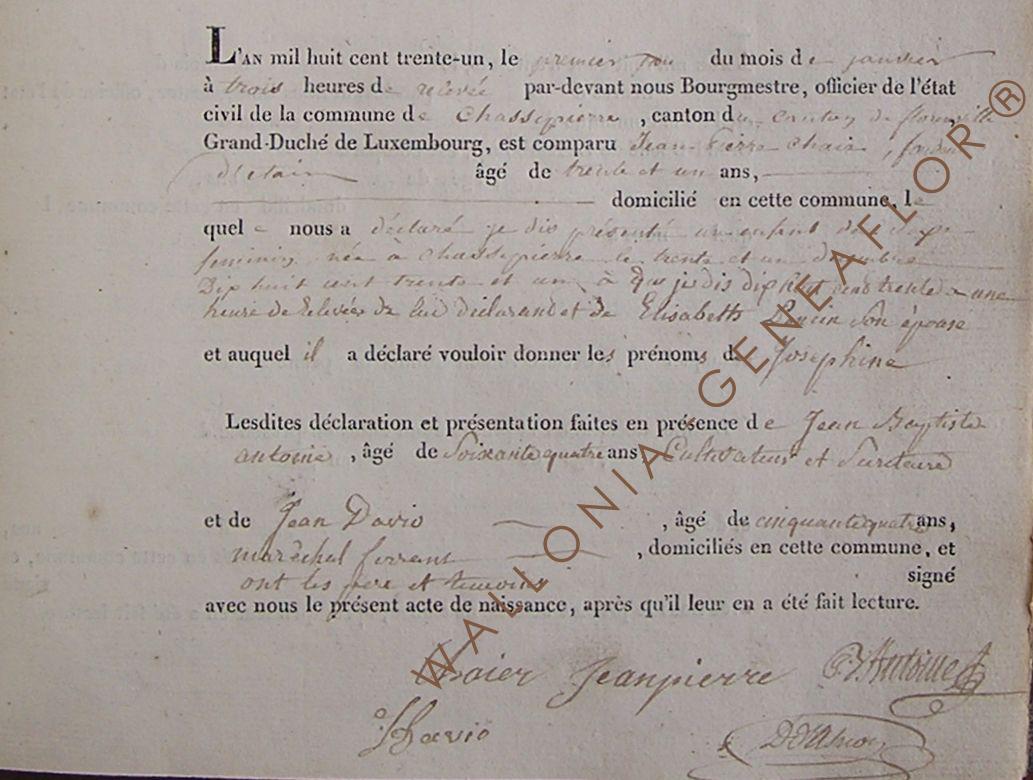 L'AN mil huit cent trente-un, le premier jour du mois de janvier
à trois heures de relevée par-devant nous Bourgmestre, officier de l'état
civil de la commune de Chassepierre, canton du canton de florenville
Grand-Duché de Luxembourg, est comparu Jean Pierre
d'étain âgé de trente et un ans,
domicilié en cette commune, le
quel nous a déclaré je dis présenté un enfant du Sexe
feminin née à Chassepierre le trente et un décembre
Dix huit cent trente et un, à que je dis dix huit cent trente a une
heure de Relevée de lui déclarant et de Elisabeth Son épouse
et auquel il a déclaré vouloir donner les prénoms de Josephine
Lesdites déclaration et présentation faites en présence de Jean Baptiste
antoine, âgé de Soixante quatre ans, Cultivateur et
et de Jean Davio, âgé de cinquante quatre ans,
marechal ferrant, domiciliés en cette commune, et
ont les pere et temoins signé
avec nous le présent acte de naissance, après qu'il leur en a été fait lecture.
Jeanpierre Antoine
Davio
WALLONIA GENEAFLOR ®